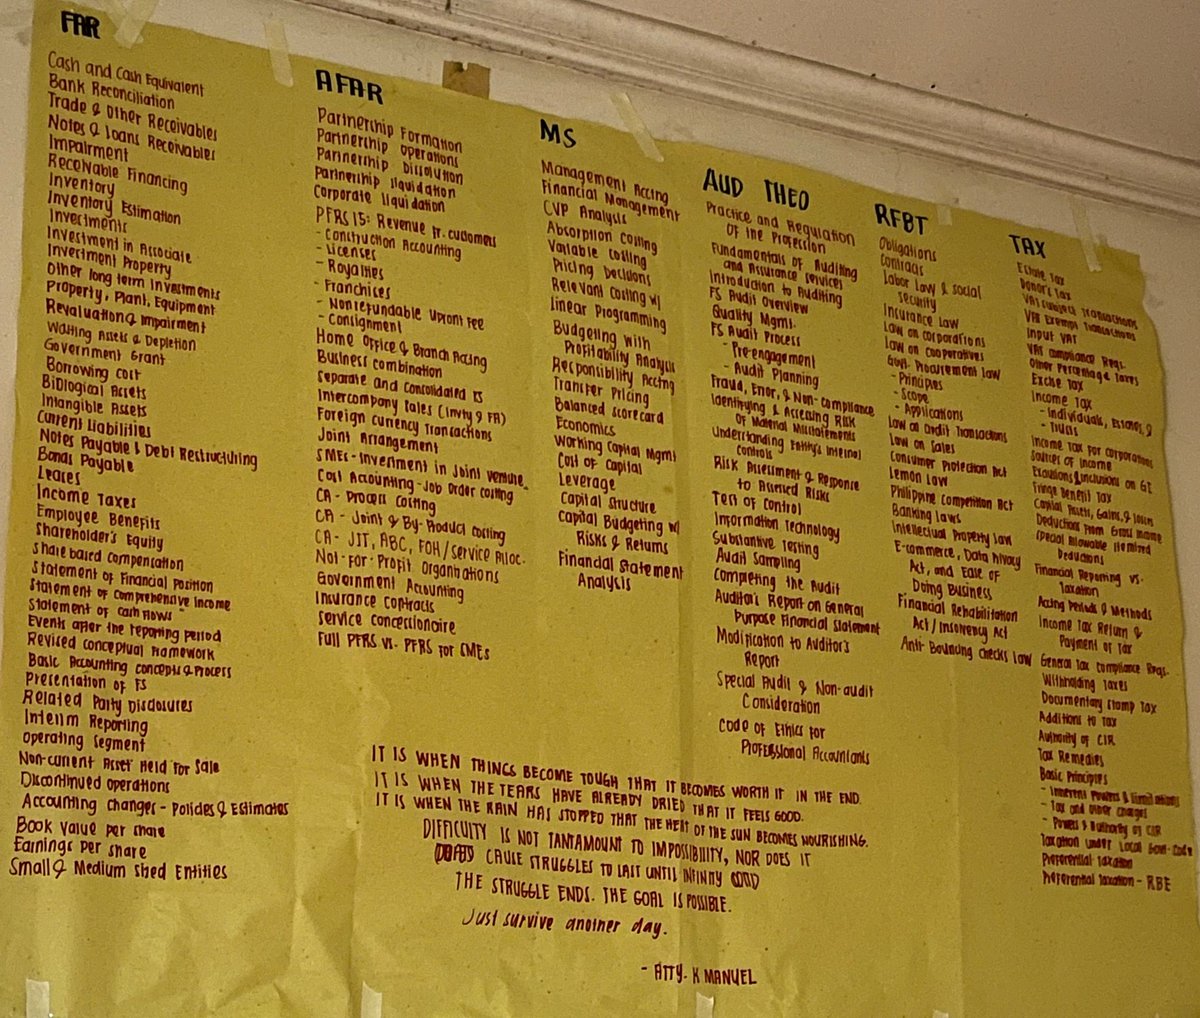 FAR
Cash and Cash Equivalent
Bank Reconciliation
Trade & Other Receivables
Notes & Loans Receivables
Impairment
Receivable Financing
Inventory
Inventory Estimation
Investments
Investment in Associate
Investment Property
Other long term Investments
Property, Plant, Equipment
Revaluation & Impairment
Wasting Assets & Depletion
Government Grant
Borrowing cost
Biological Assets
Intangible Assets
Current Liabilities
Notes Payable & Debt Restructuring
Bonds Payable
Leases
Income Taxes
Employee Benefits
Shareholder's Equity
Share based Compensation
Statement of Financial Position
Statement of Comprehensive Income
Statement of Cash Flows
Events after the reporting period
Revised conceptual Framework
Basic Accounting concepts & Process
Presentation of FS
Related Party Disclosures
Interim Reporting
Operating Segment
Non-current Asset Held for Sale
Discontinued operations
Accounting Changes - Policies & Estimates
Book Value per share
Earnings Per share
Small & Medium Sized Entities
AFAR
Partnership Formation
Partnership Operations
Partnership Dissolution
Partnership liquidation
Corporate liquidation
PFRS 15: Revenue fr. customers
- Construction Accounting
- Licenses
- Royalties
- Franchises
- Nonrefundable Upfront Fee
- Consignment
Home Office & Branch Acctng
Business combination
Separate and Consolidated FS
Intercompany Sales (Invty & FA)
Foreign currency Transactions
Joint Arrangement
SMEs - Investment in Joint Venture
Cost Accounting - Job Order costing
CA - Process Costing
CA - Joint & By-Product costing
CA - JIT, ABC, FOH/Service Alloc.
Not-for-Profit Organitions
Government Accounting
Insurance Contracts
Service Concessionaire
Full PFRS vs. PFRS for SMEs
MS
Management Acctng
Financial Management
CVP Analysis
Absorption Costing
Variable Costing
Pricing Decisions
Relevant Costing w/
Linear Programming
Budgeting with
Profitability Analysis
Responsibility Acctng
Transfer Pricing
Balanced Scorecard
Economics
Working Capital Mgmt
Cost of Capital
Leverage
Capital Structure
Capital Budgeting w/
Risks & Returns
Financial Statement
Analysis
AUD THEO
Practice and Regulation
Of the Profession
Fundamentals of Auditing
and Assurance services
Introduction to Auditing
FS Audit Overview
Quality Mgmt.
FS Audit Process
- Pre-engagement
- Audit Planning
Fraud, Error, & Non-compliance
Identifying & Assessing Risk
Of Material Misstatements
Understanding Entity's Internal
Controls
Risk Assessment & Response
to Assessed Risks
Test of Control
Information Technology
Substantive Testing
Audit Sampling
Completing the Audit
Auditor's Report on General
Purpose Financial statement
Modification to Auditor's
Report
Special Audit & Non-audit
Consideration
Code of Ethics for
Professional Accountants
RFBT
Obligations
Contracts
Labor law & social
security
Insurance Law
Law on Corporations
Law on Cooperatives
Govt. Procurement Law
- Principles
- Scope
- Applications
Law on Credit Transactions
Law on Sales
Consumer Protection Act
Lemon Law
Philippine Competition Act
Banking laws
Intellectual Property law
E-commerce, Data Privacy
Act, and Ease of
Doing Business
Financial Rehabilitation
Act / Insolvency Act
Anti-Bouncing Checks Law
TAX
Estate Tax
Donor's Tax
VAT subject Transactions
VAT Exempt Transactions
Input VAT
VAT compliance Reqs.
Other Percentage Taxes
Excise Tax
Income Tax
- Individuals, Estates, &
- Trusts
Income Tax for Corporations
Sources of Income
Exclusions & Inclusions on GI
Fringe Benefit Tax
Capital Assets, Gains, & losses
Deductions from Gross Income
Special Allowable Itemized
Deductions
Financial Reporting vs.
Taxation
Acctng Periods & Methods
Income Tax Return &
Payment of Tax
General Tax Compliance Reqs.
Withholding Taxes
Documentary Stamp Tax
Additions to Tax
Authority of CIR
Tax Remedies
Basic Principles
- Inherent Powers & Limitations
- Tax and other charges
- Powers & Authority of CIR
Taxation under Local Govt. Code
Preferential Taxation
Preferential Taxation - RBE
IT IS WHEN THINGS BECOME TOUGH THAT IT BECOMES WORTH IT IN THE END.
IT IS WHEN THE TEARS HAVE ALREADY DRIED THAT IT FEELS GOOD.
IT IS WHEN THE RAIN HAS STOPPED THAT THE HEAT OF THE SUN BECOMES NOURISHING.
DIFFICULTY IS NOT TANTAMOUNT TO IMPOSSIBILITY, NOR DOES IT
CAUSE STRUGGLES TO LAST UNTIL INFINITY
THE STRUGGLE ENDS. THE GOAL IS POSSIBLE.
Just survive another day.
- ATTY. K MANUEL